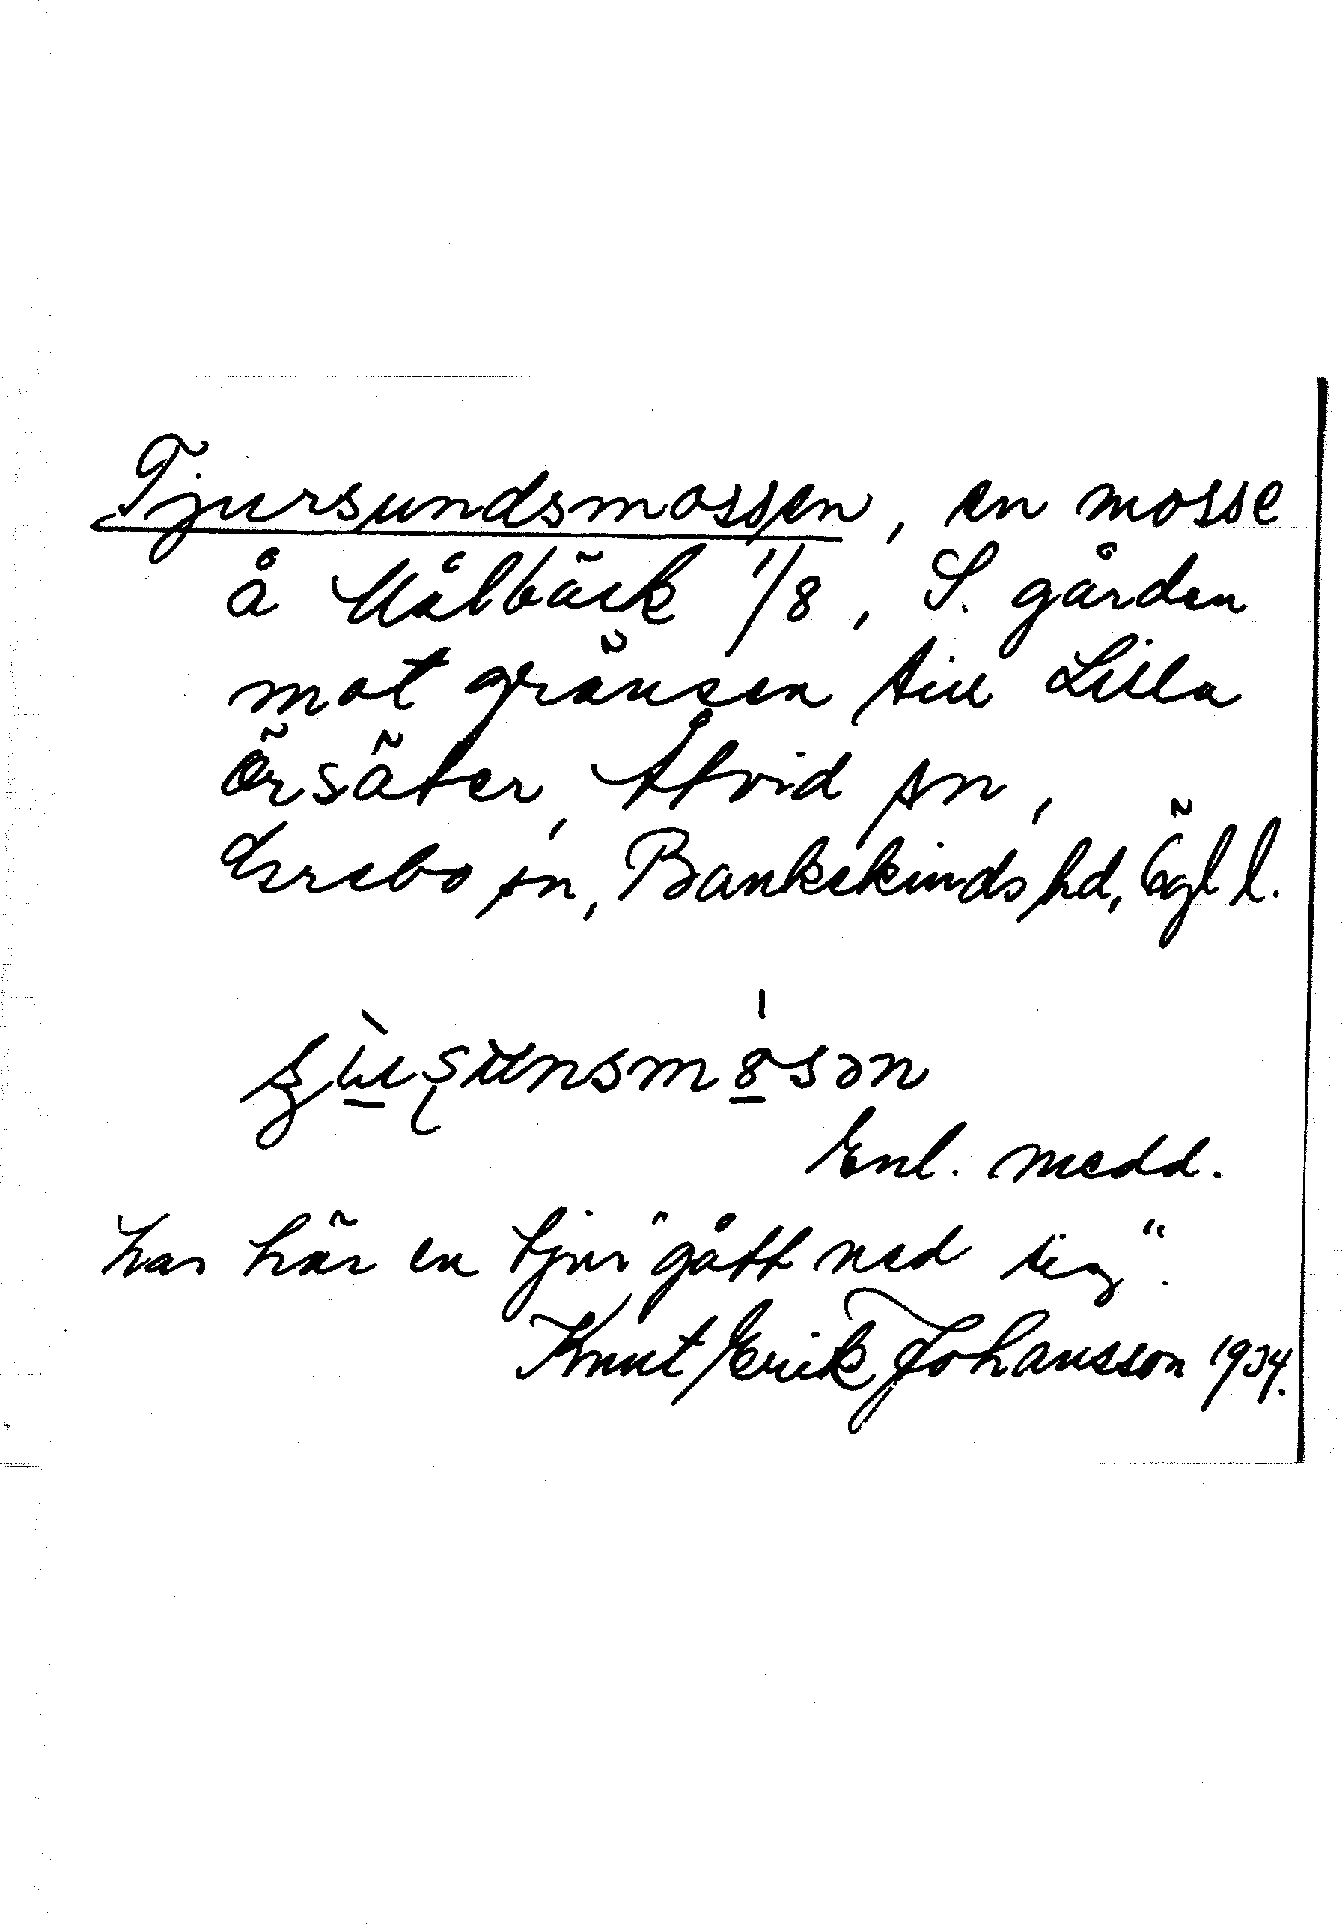 Tjursundsmossen, en mosse
å Målbäck 1/8, S. gården
mot gränsen till Lilla
Örsäter, Åtvid sn,
Grebo sn, Bankekinds hd, Ögl l.
Enl. medd.
har här en tjur "gått ned sig".
Knut Erik Johansson 1934.